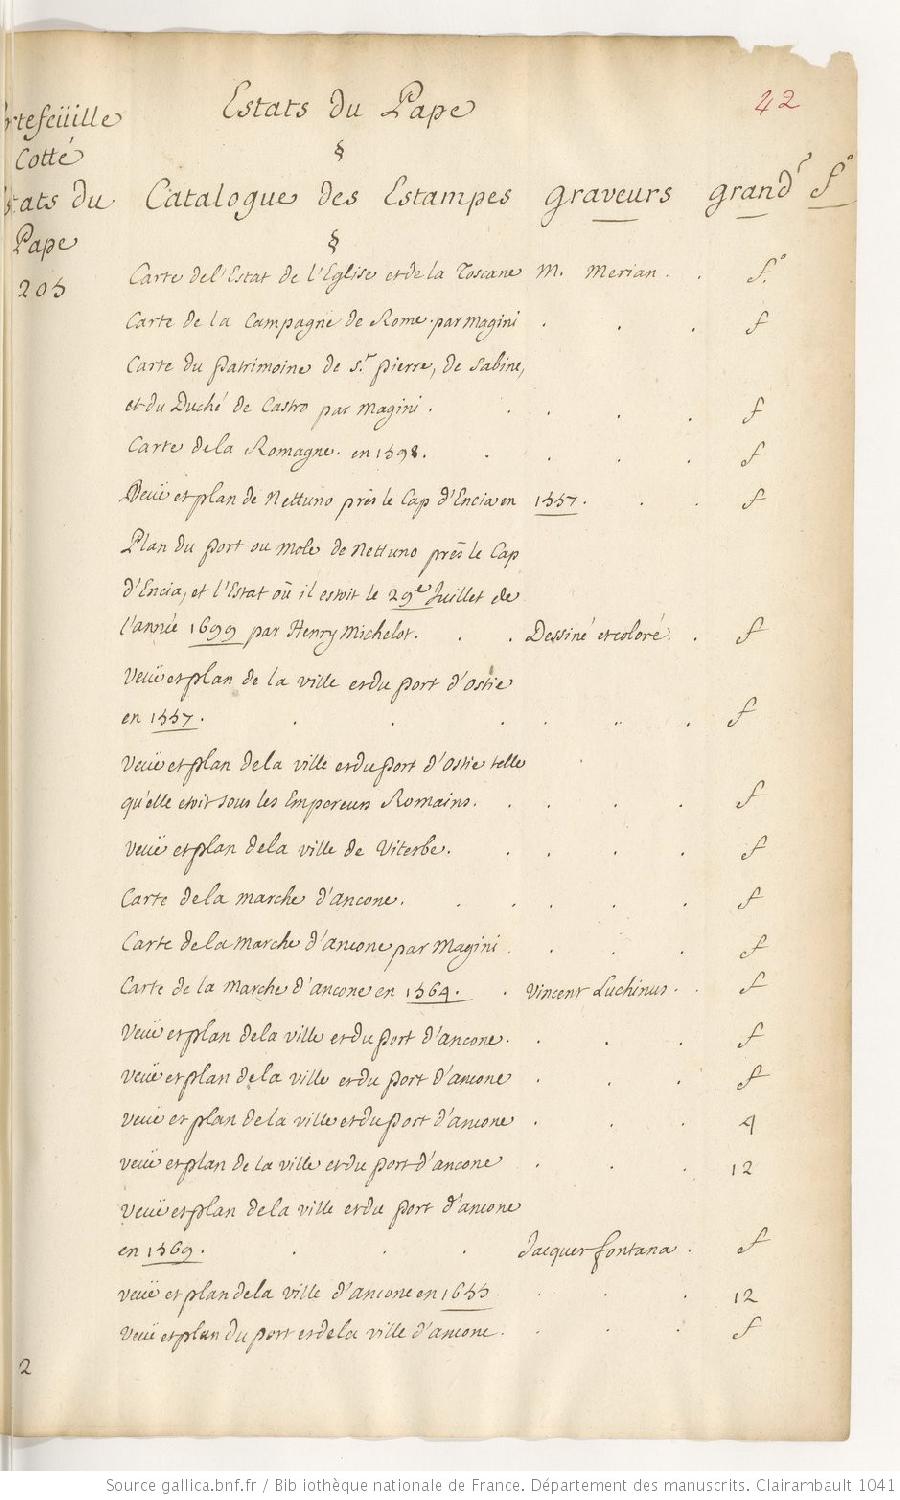 Estats du Pape
42
rtefeüille
Cotté
stats du
Pape
205
§
Catalogue des Estampes graveurs grand.r f.o
§
Carte del'Estat de l'Eglise et de la Toscane M. Merian . . f.o
Carte de la Campagne de Rome. par Magini . . . f
Carte du patrimoine de s.t pierre, de Sabine,
et du Duché de Castro par Magini . . . . . f
Carte dela Romagne. en 1598. . . . . f
Veüe et plan de Nettuno près le Cap d'Encia en 1557. . . f
Plan du port ou mole de Nettuno près le Cap
d'Encia, et l'Estat où il estoit le 29e Juillet de
l'année 1699 par Henry Michelot. . . Dessiné et coloré. . f
Veüe et plan de la ville et du port d'Ostie
en 1557. . . . . . . f
Veüe et plan dela ville et du port d'Ostie telle
qu'elle etoit sous les Empereurs Romains. . . . . f
veüe et plan dela ville de Viterbe. . . . . f
Carte dela marche d'ancone. . . . . . f
Carte dela Marche d'ancone par Magini . . . . f
Carte de la Marche d'ancone en 1564. . Vincent Luchinus. . f
Veüe et plan dela ville et du port d'ancone. . . . f
Veüe et plan dela ville et du port d'ancone . . . f
veüe et plan dela ville et du port d'ancone . . . 4
veüe et plan de la ville et du port d'ancone . . . 12
Veüe et plan dela ville et du port d'ancone
en 1569. . . . Jacques fontana . f
veüe et plan dela ville d'ancone en 1655 . . . 12
Veüe et plan du port et dela ville d'ancone. . . . f
2
Source gallica.bnf.fr / Bibliothèque nationale de France. Département des manuscrits. Clairambault 1041